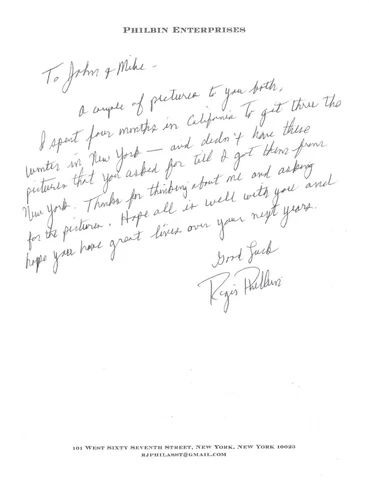 PHILBIN ENTERPRISES
To John & Mike -
A couple of pictures to you both.
I spent four months in California to get three the
winter in New York — and didn't have these
pictures that you asked for till I got them from
New York. Thanks for thinking about me and asking
for the pictures. Hope all is well with you and
hope you have great lives over your next years.
Good Luck
Regis Philbin
101 WEST SIXTY SEVENTH STREET, NEW YORK, NEW YORK 10023
RJPHILASST@GMAIL.COM